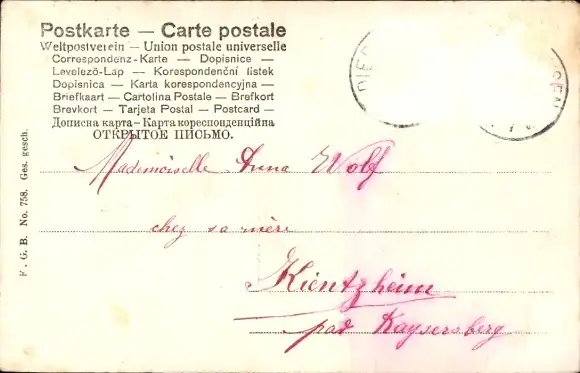 Postkarte — Carte postale
Weltpostverein — Union postale universelle
Correspondenz-Karte — Dopisnice —
Levelező-Lap — Korespondenční lístek
Dopisnica — Karta korespondencyjna —
Briefkaart — Cartolina Postale — Brefkort
Brevkort — Tarjeta Postal — Postcard —
Дописна карта — Карта кореспонденційна
ОТКРЫТОЕ ПИСЬМО.
Mademoiselle Anna Wolf
chez sa mère
Kientzheim
Kaysersberg
F. G. B. No. 758. Ges. gesch.